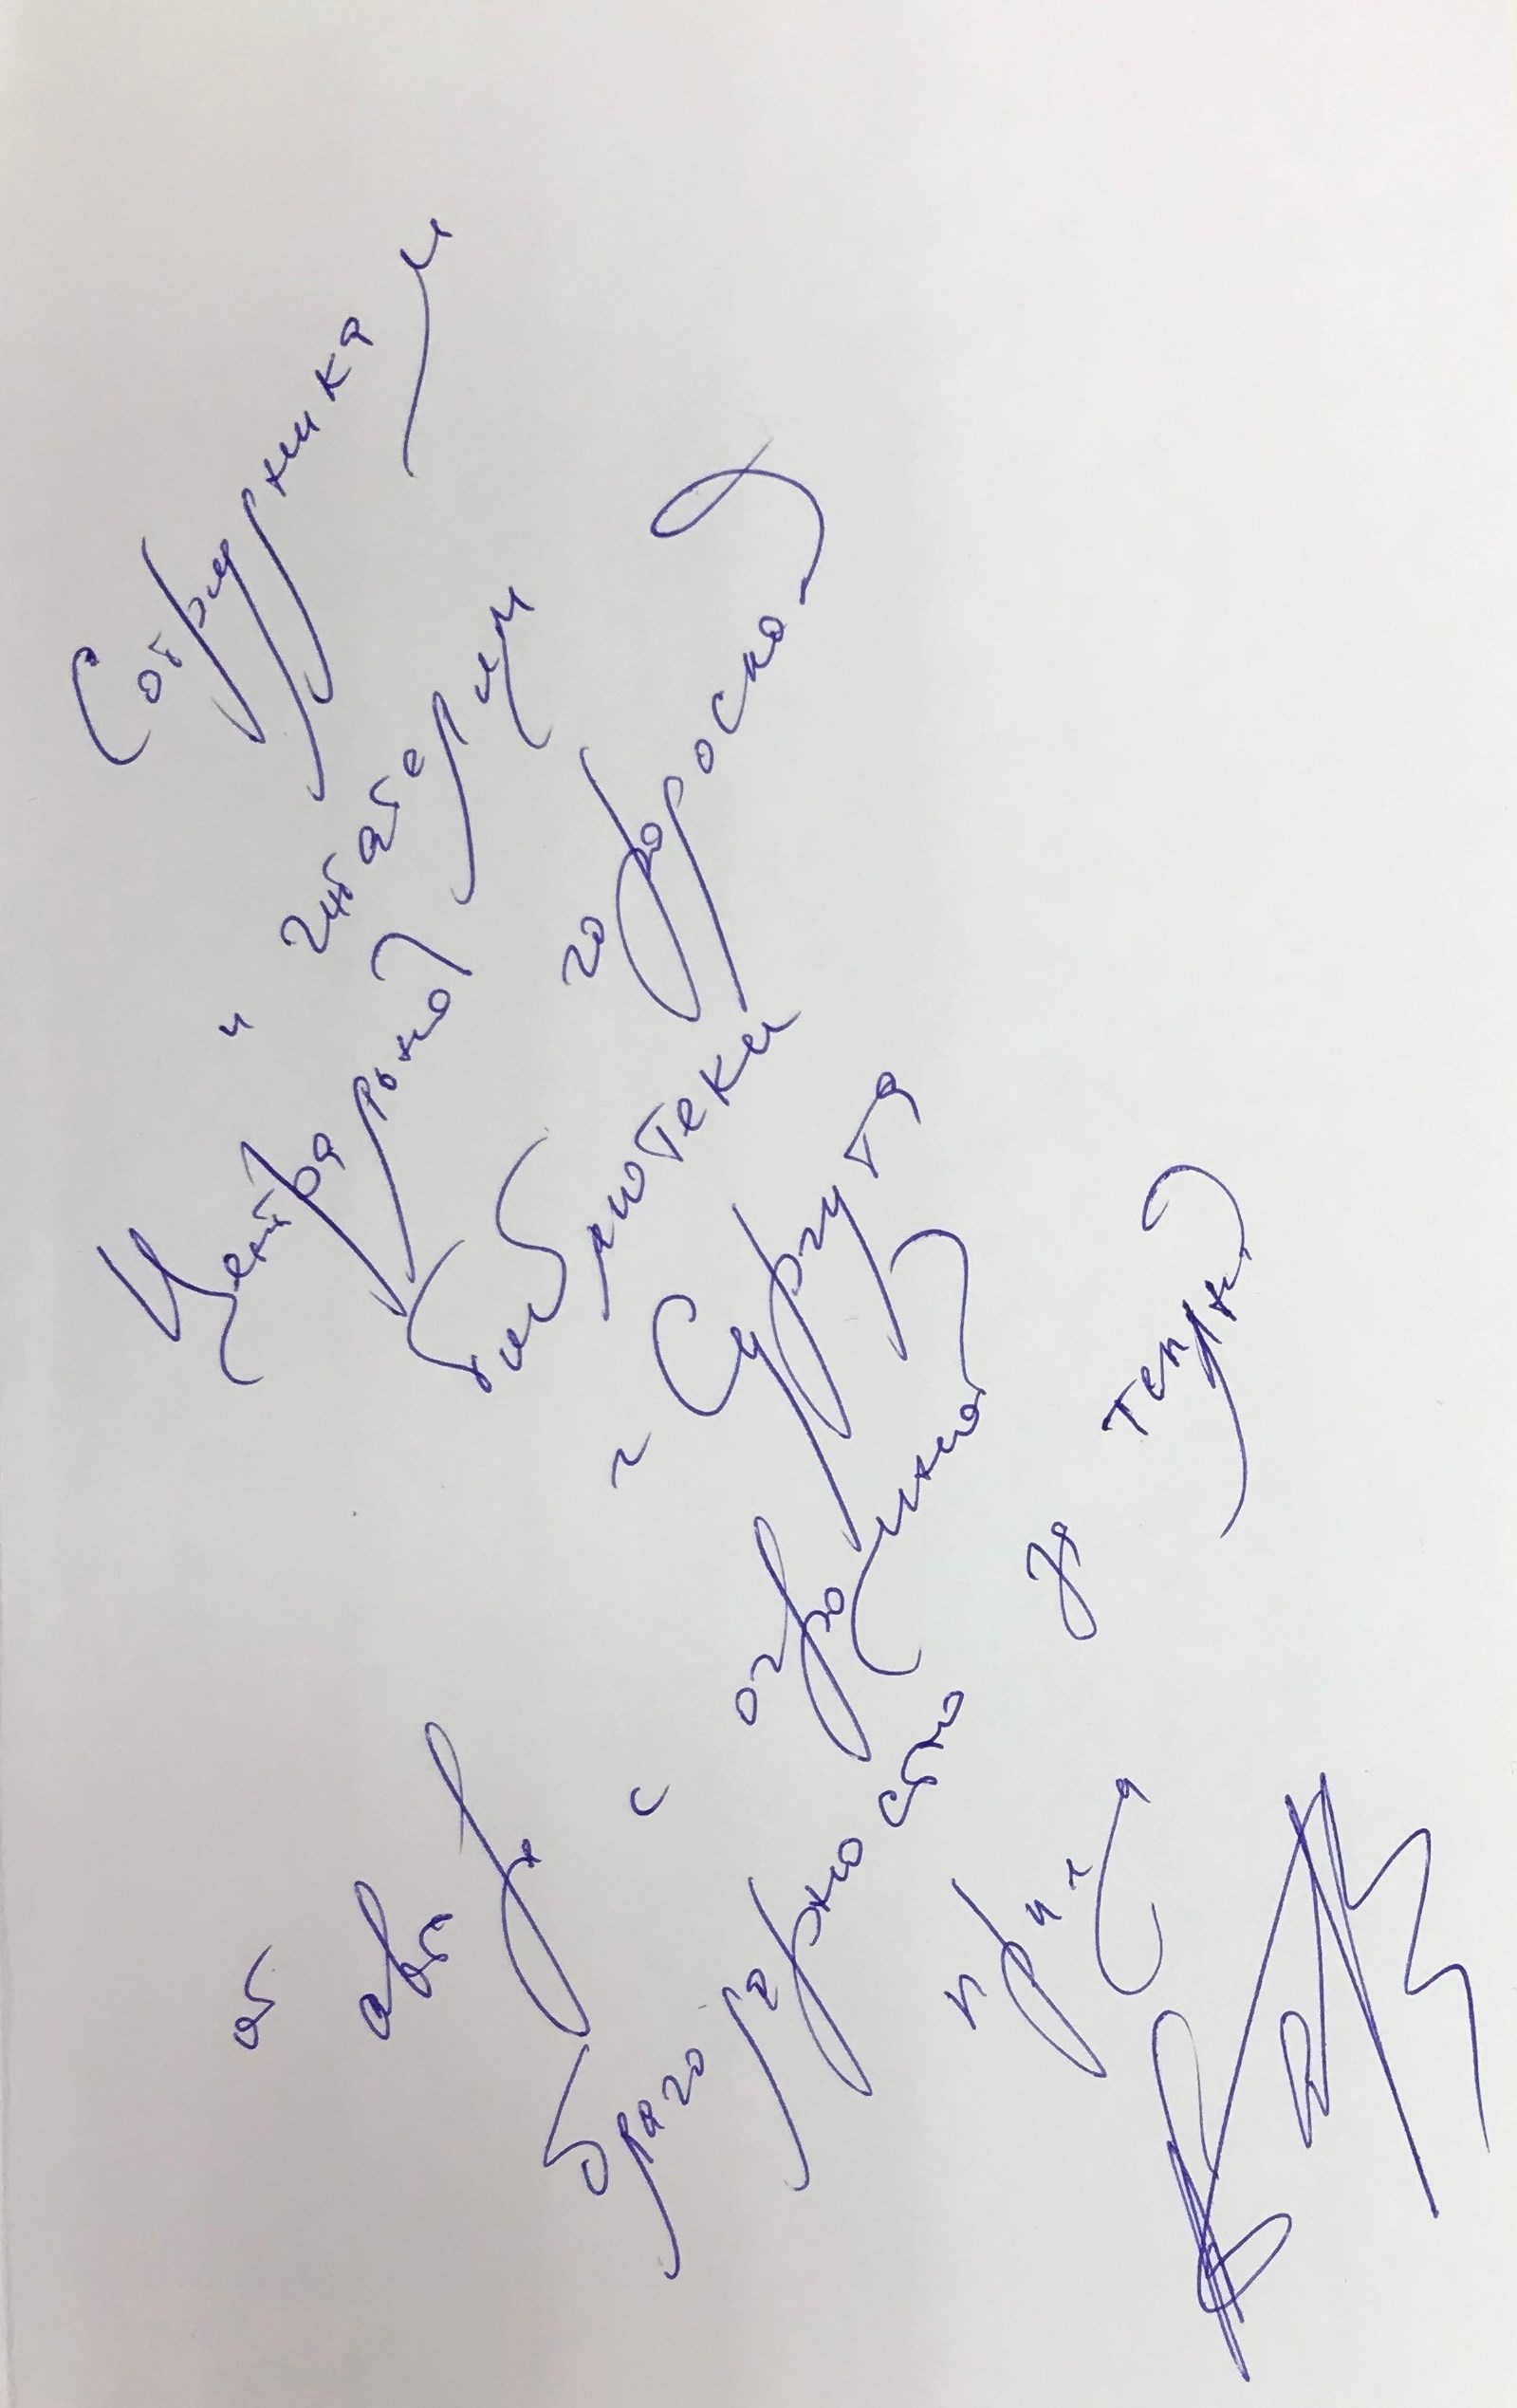 Сотрудникам
и читателям
Центральной городской
библиотеки
г Сургута
от автора с огромной
благодарностью за теплый
приём